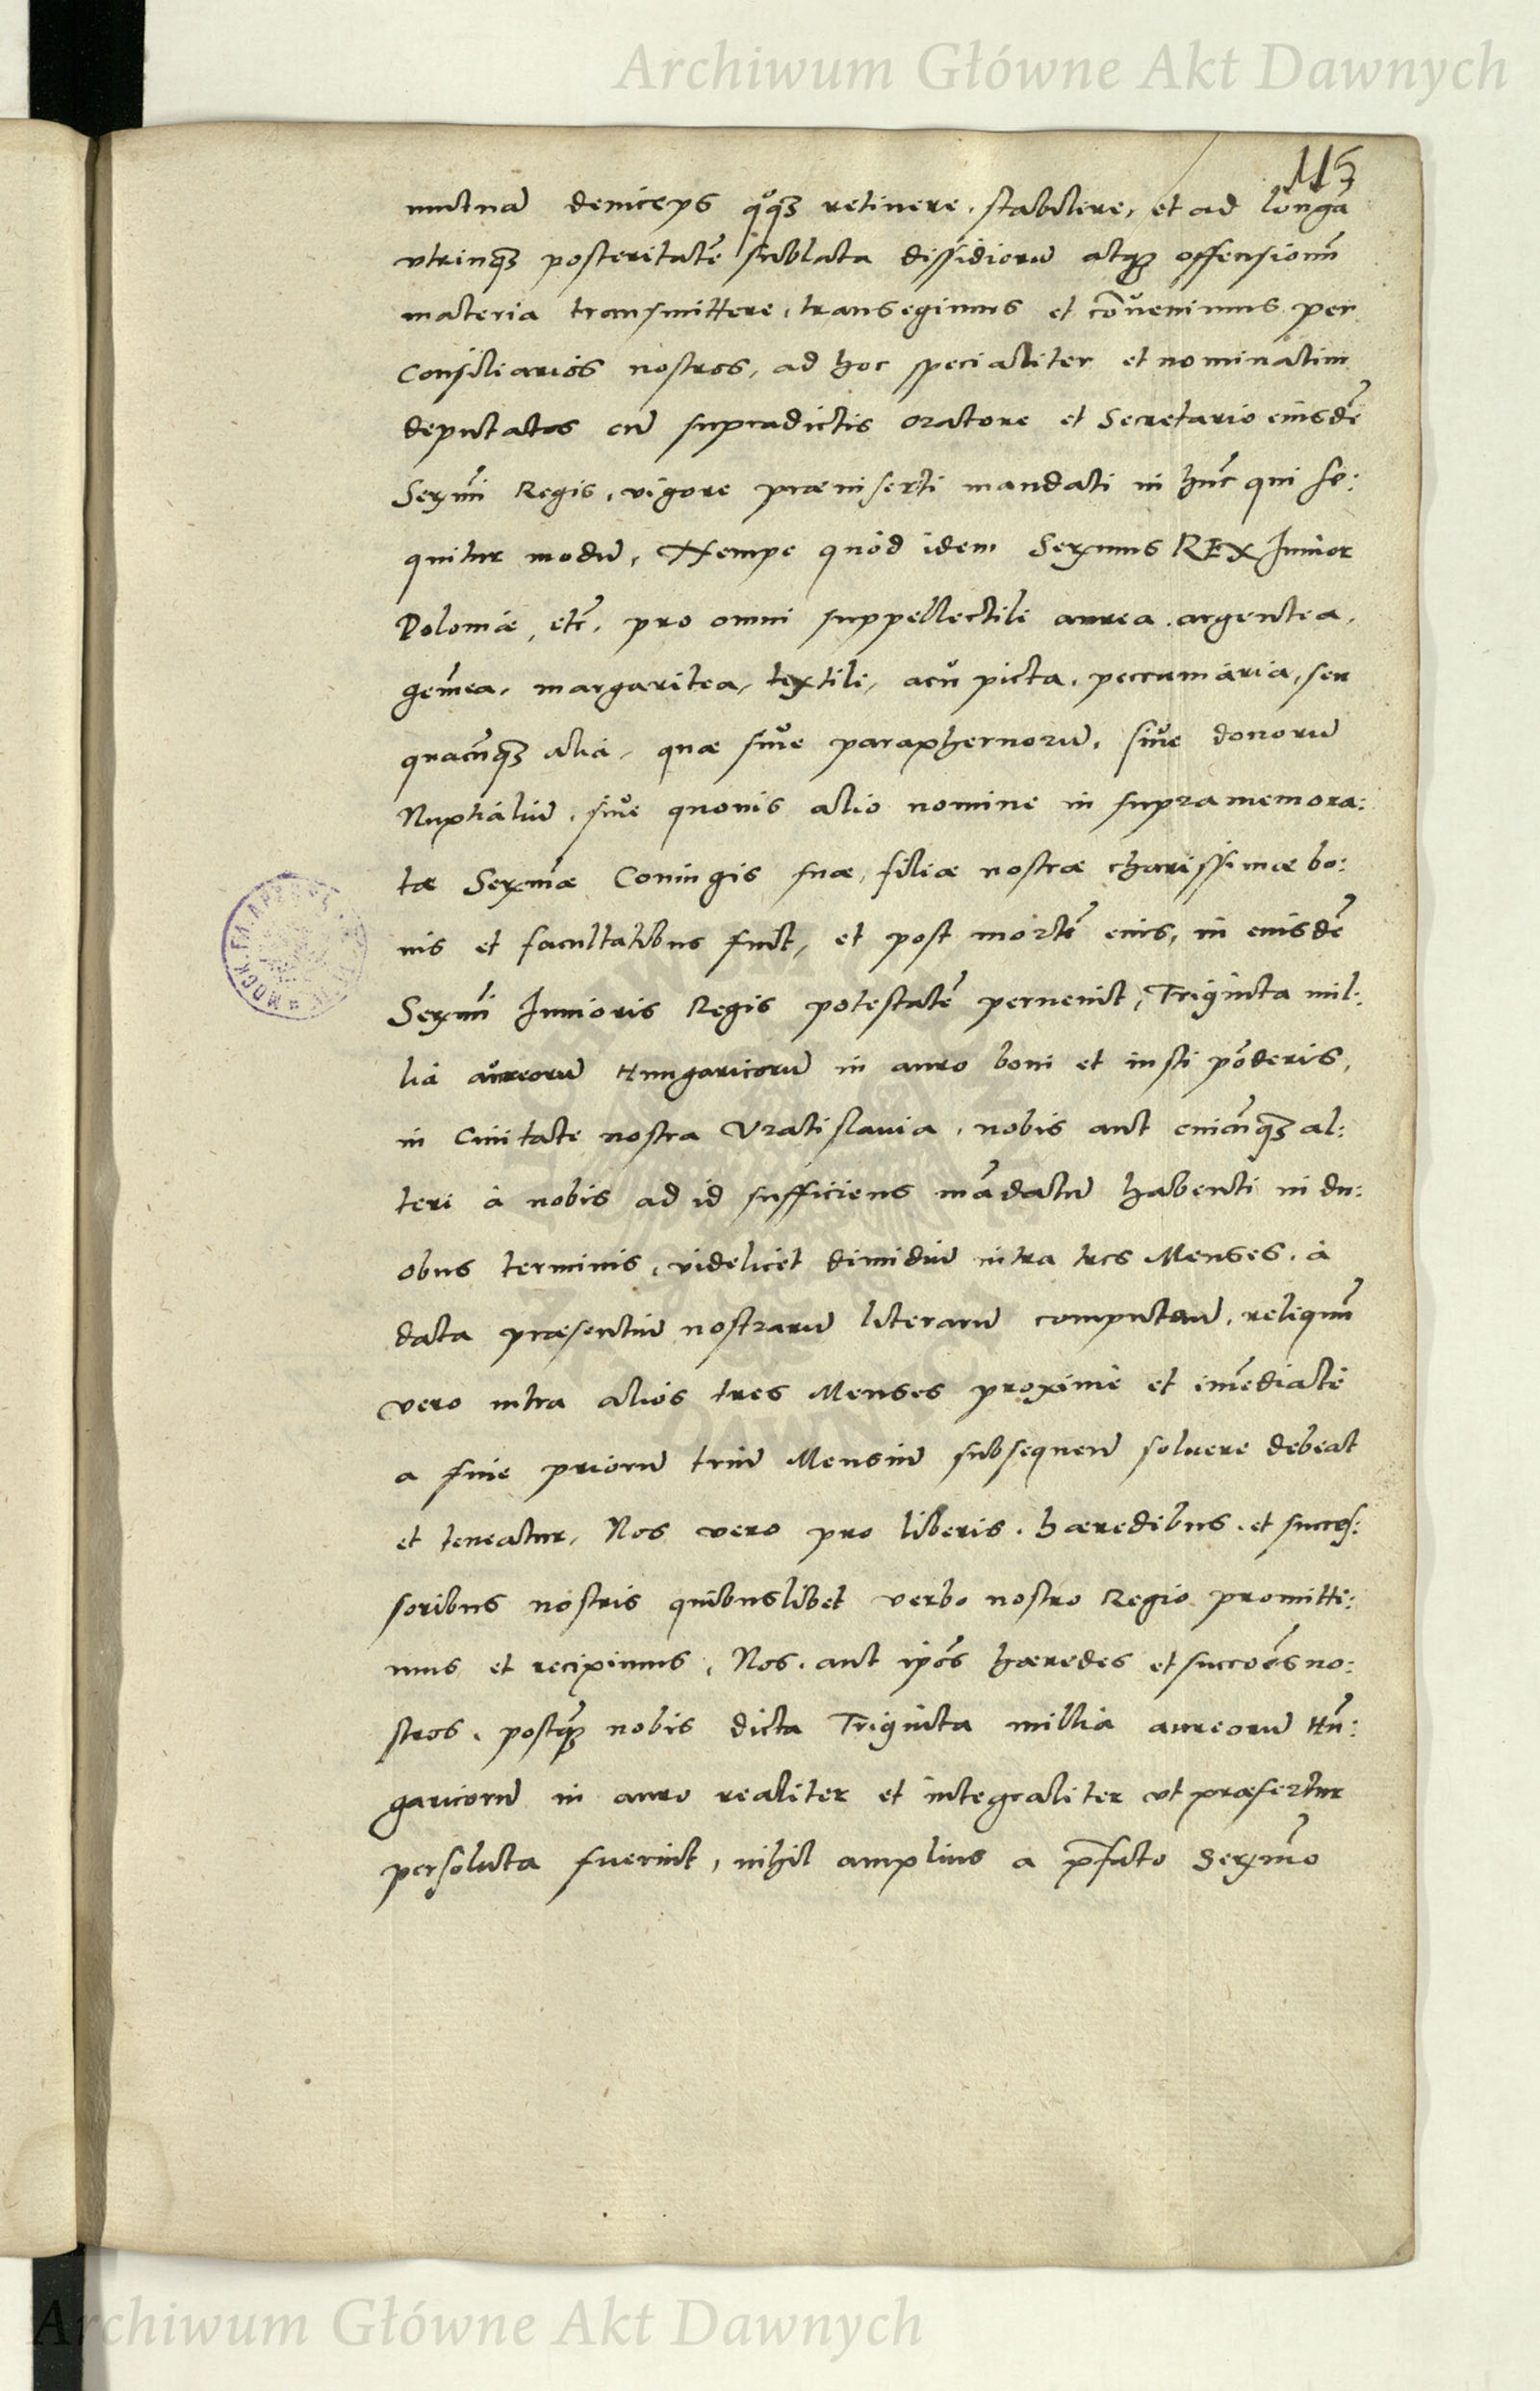 Archiwum Główne Akt Dawnych
115
mutuā deniceps qq̨ retinere, stabilire, et ad longā
vtrinq̨ posteritatē sublata dissidiorū atq̨ offensionū
materia transmittere, transegimus et cōuenimus per
Consiliarios nostros, ad hoc specialiter et nominatim
deputatos cū supradictis oratore et Secretario eiusdē
Serm̄i Regis, vigore præinserti mandati in hūc qui se:
quitur modū, Nempe quòd idem Serẽmus REX Junior
Poloniæ, etc̄. pro omni suppellectili aurea, argentea,
gem̄ea, margaritea, textili, acu picta, peccuniaria, seu
quacūq̨ alia, quæ siue paraphernorū, siue donorū
Nuptialiū, siue quouis alio nomine in supramemora:
tæ Serm̄æ Coniugis suæ, filiæ nostræ charissimæ bo:
nis et facultatibus fuit, et post mortē eius, in eiusdē
Serm̄i Junioris Regis potestatē peruenit, Triginta mil:
lia aureorū Hungaricorū in auro boni et iusti pōderis,
in Ciuitate nostra Vratislauia, nobis aut cuicūq̨ al:
teri à nobis ad id sufficiens mādatū habenti in du:
obus terminis, videlicet dimidiū intra tres Menses, à
data præsentiū nostrarū literarū computañ, reliquū
vero intra alios tres Menses proximè et im̄ediatè
a fine priorū triū Mensiū subsequeñ soluere debeat
et teneatur, Nos vero pro liberis, hæredibus, et succes:
soribus nostris quibuslibet verbo nostro Regio promitti:
mus et recipimus, Nos, aut ip̄os hæredes et succōēs no:
stros, postq̨ nobis dicta Triginta millia aureorū Hū:
garicorū in auro realiter et integraliter vt præfertur
persoluta fuerint, nihil amplius a p̄fato Serm̄o
Archiwum Główne Akt Dawnych